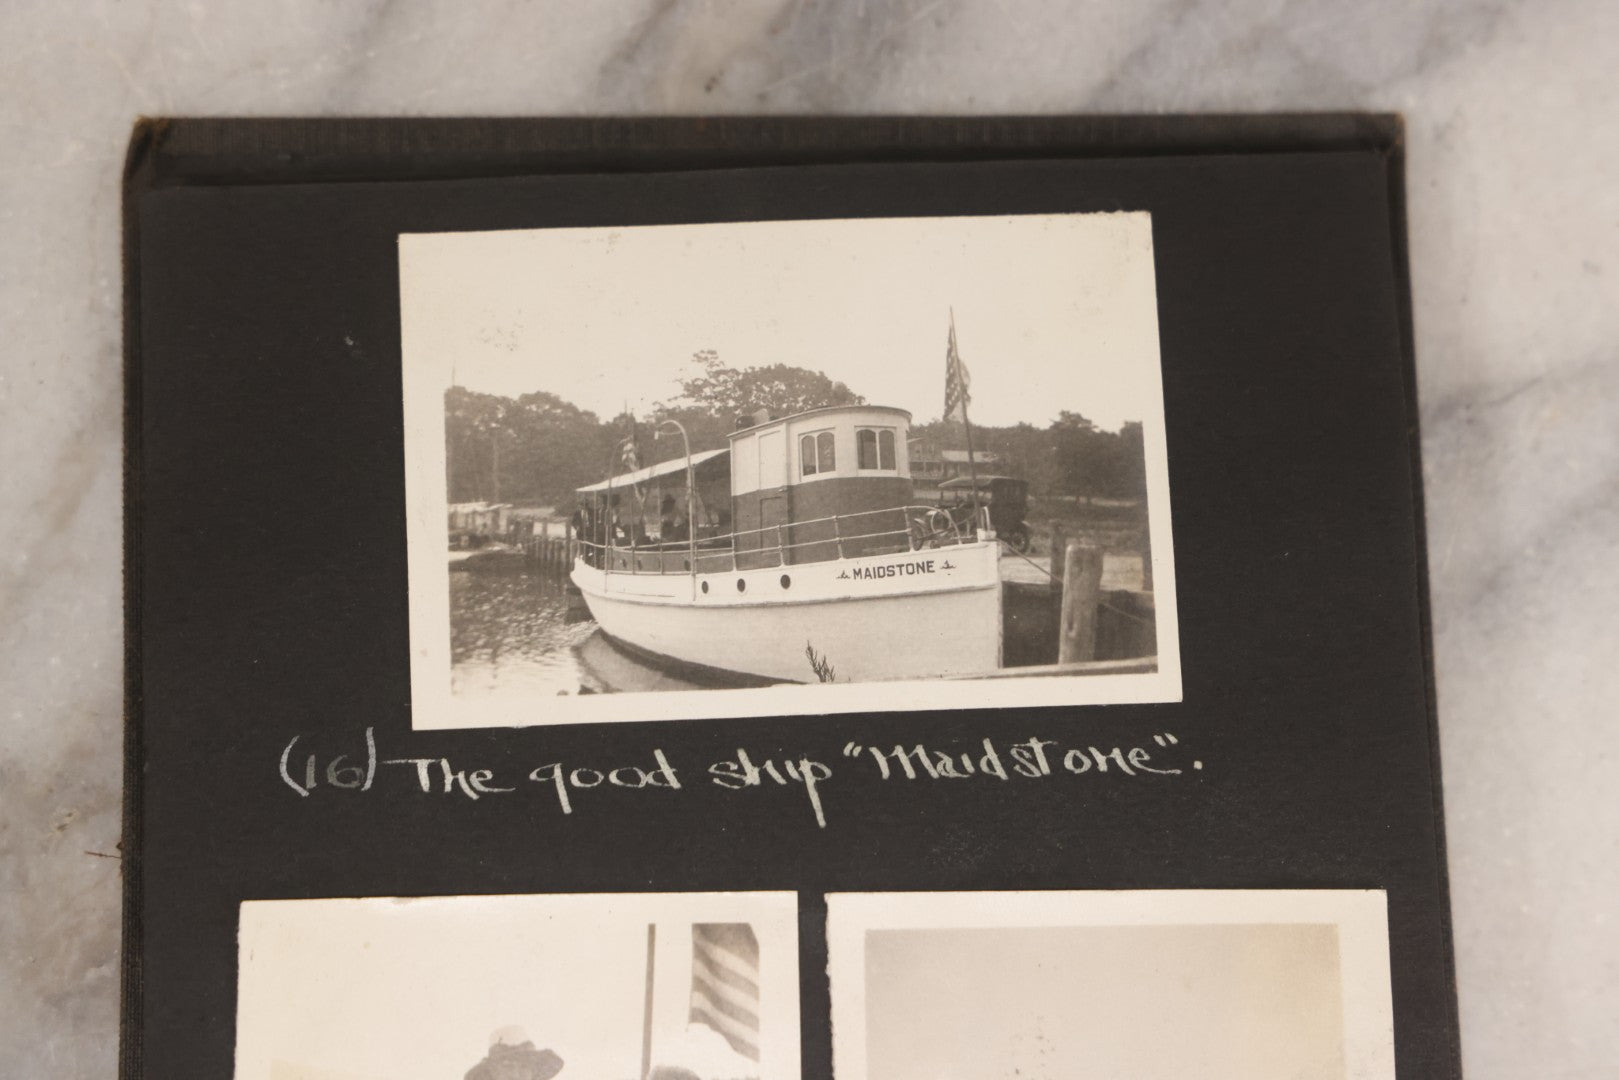 MAIDSTONE
(16) The good ship "Maidstone".